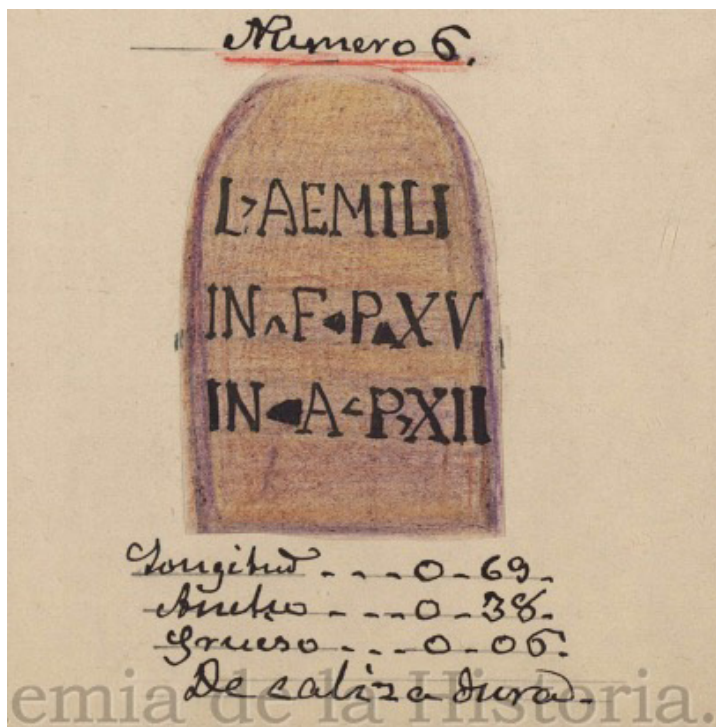 Numero 6.
L › AEMILI
IN ^ F ◂ P ▴ XV
IN ◂ A ‹ P › XII
Longitud - - - 0 - 69 -
Ancho - - - 0 - 38 -
Grueso - - - 0 - 06.
De caliza dura -
emia de la Historia.